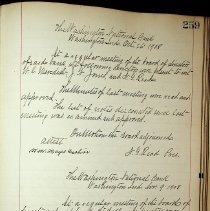 259
The Washington National Bank
Washington Ind. Oct. 12, 1908
At a regular meeting of the board of directors
of said bank the following directors were present to wit
The Minutes of last meeting were read and
approved.
The list of notes discounted since last
meeting was as examined and approved.
On Motion the board adjourned.
attest
Cashier
Pres.
The Washington National Bank
Washington Ind. Nov. 9 1908
At a regular meeting of the board of